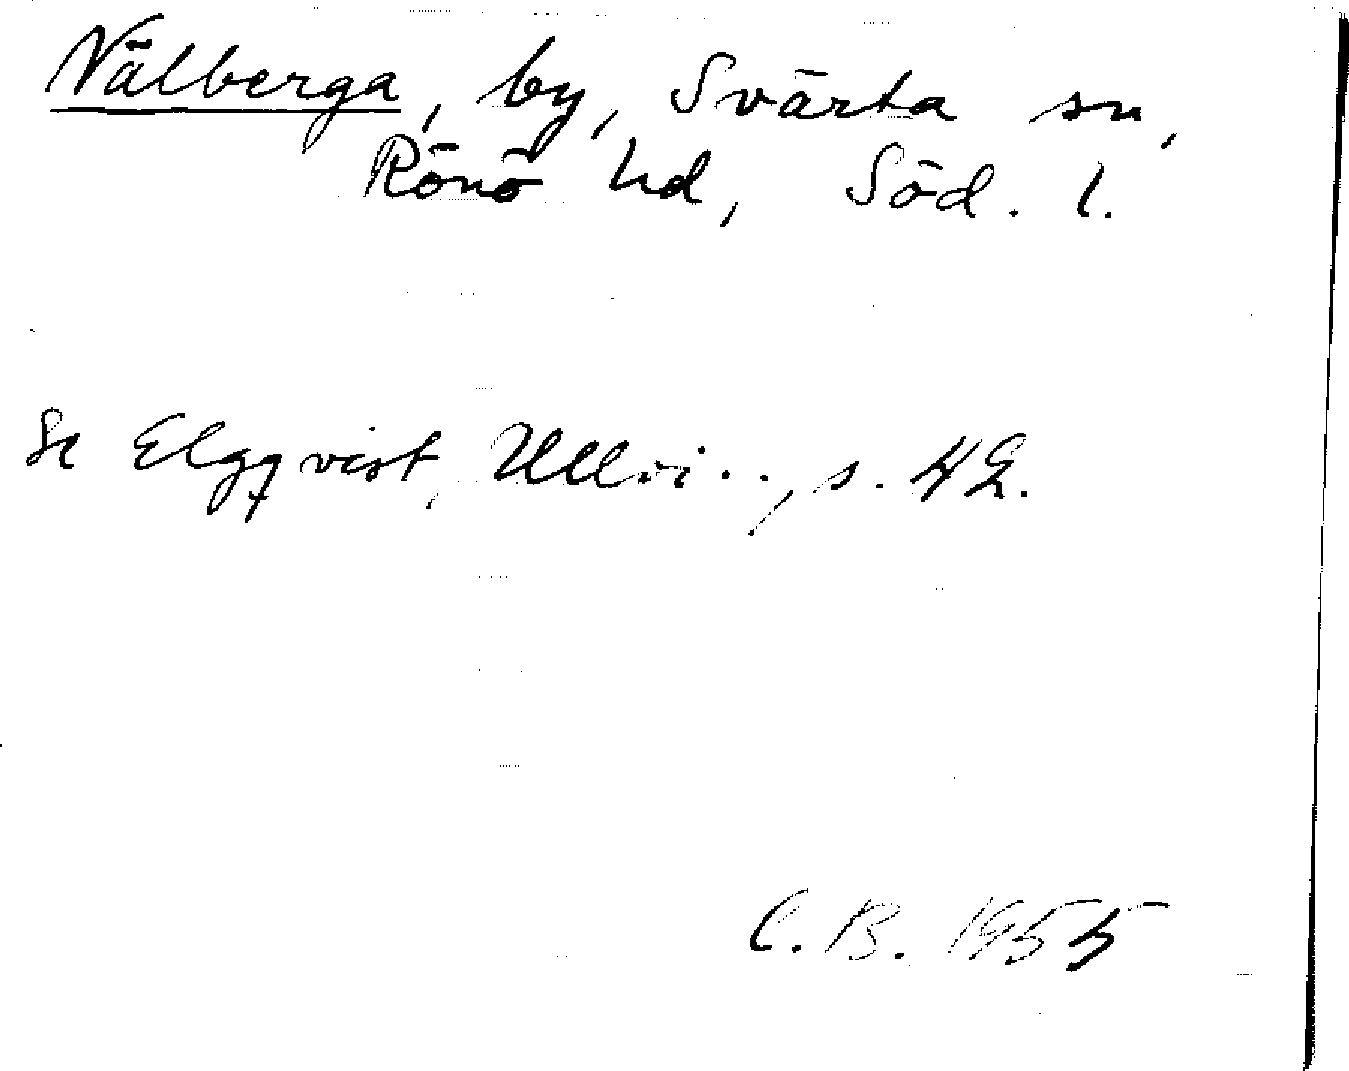 Nälberga, by, Svärta sn,
Rönö hd, Söd. l.
Se Elgqvist, Ullvi.., s. 42.
C. B. 1955